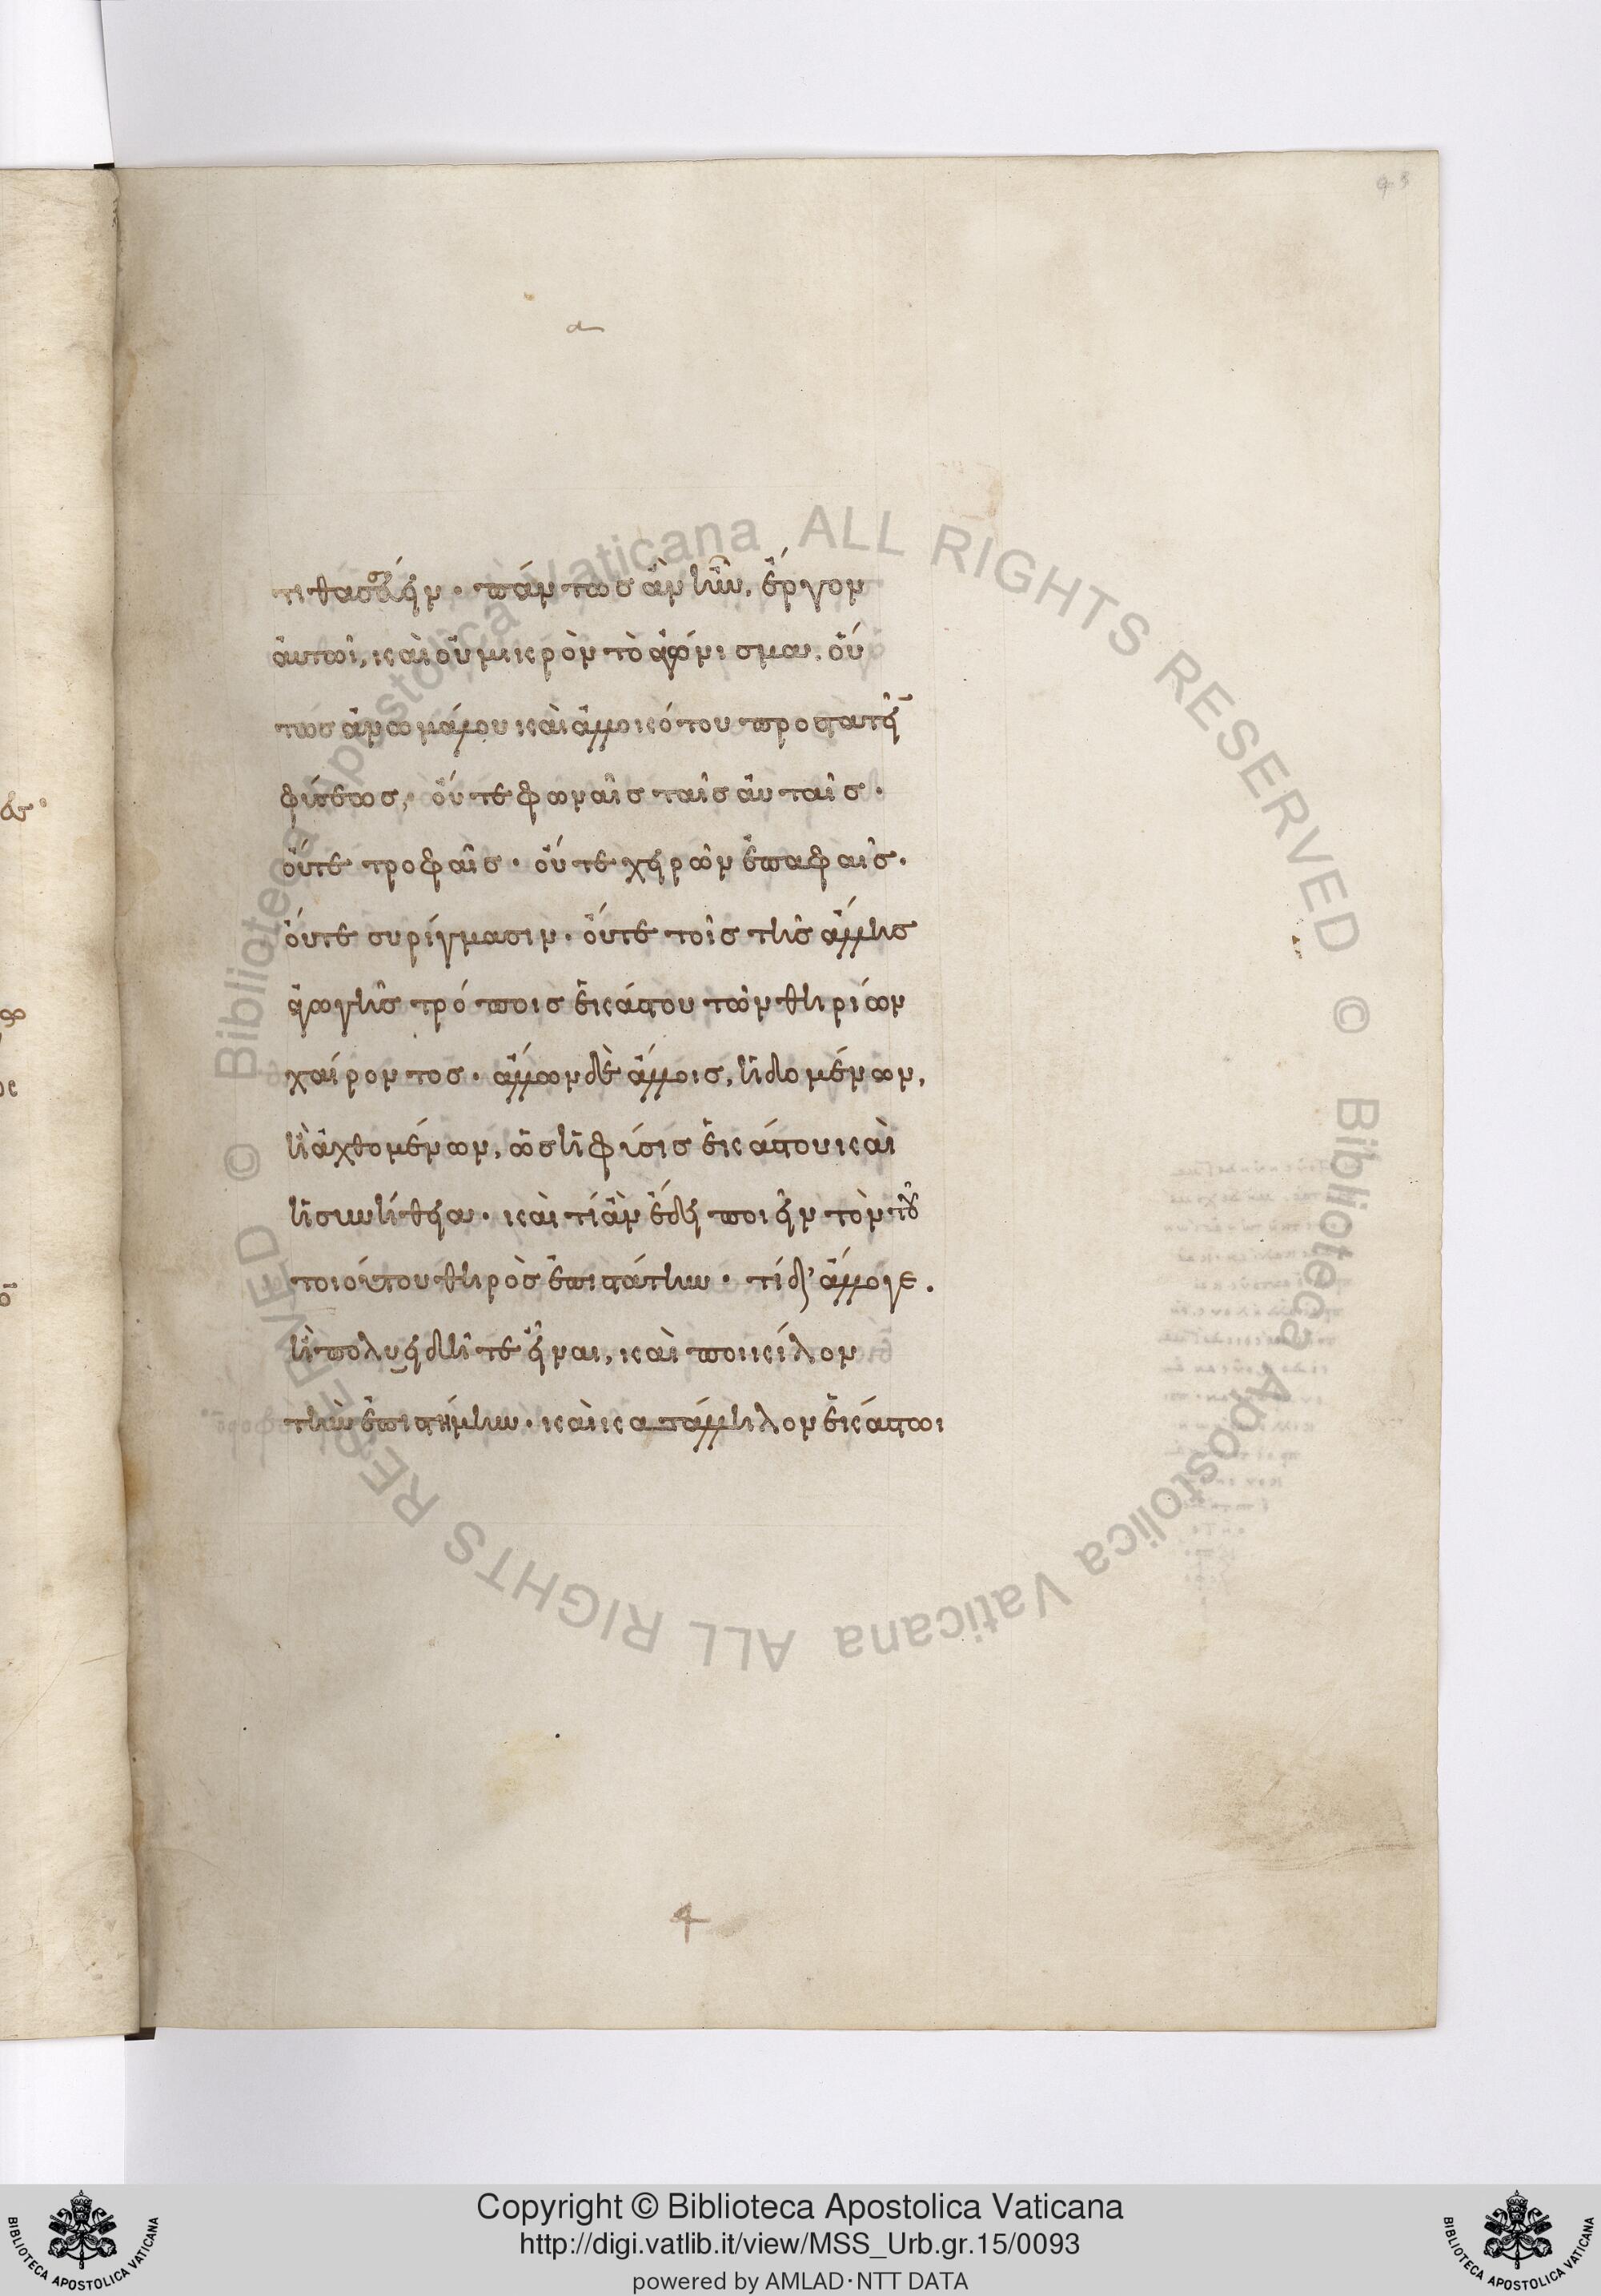 43
τιθασσεύειν· πάντως ἂν ἦν, ἔργον
αὐτῶι, καὶ οὐ μικρὸν τὸ ἀγώνισμα. οὕ
τως ἀνωμάλου καὶ ἀλλοκότου προστατεῖν
φύσεως, οὔτε φωναῖς ταῖς αὐταῖς·
οὔτε τροφαῖς· οὔτε χειρῶν ἐπαφαῖς·
οὔτε συρίγμασιν· οὔτε τοῖς τῆς ἄλλης
ἀγωγῆς τρόποις ἑκάστου τῶν θηρίων
χαίροντος· ἄλλων δὲ ἄλλοις, ἡδομένων,
ἢ ἀχθομένων, ὡς ἡ φύσις ἑκάστου καὶ
ἡ συνήθεια· καὶ τί ἂν ἔδει ποιεῖν τὸν τοῦ
τοιούτου θηρὸς ἐπιστάτην· τί δ' ἄλλό γε.
ἢ πολυειδῆ τὲ εἶναι, καὶ ποικίλον
τὴν ἐπιστήμην· καὶ κατάλληλον ἑκάστωι
Copyright © Biblioteca Apostolica Vaticana
http://digi.vatlib.it/view/MSS_Urb.gr.15/0093
powered by AMLAD·NTT DATA
BIBLIOTECA APOSTOLICA VATICANA
BIBLIOTECA APOSTOLICA VATICANA
© Biblioteca Apostolica Vaticana ALL RIGHTS RESERVED
© Biblioteca Apostolica Vaticana ALL RIGHTS RESERVED